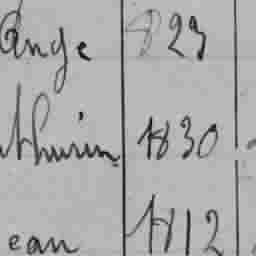 Ange 1823
thurin 1830
ean 1812